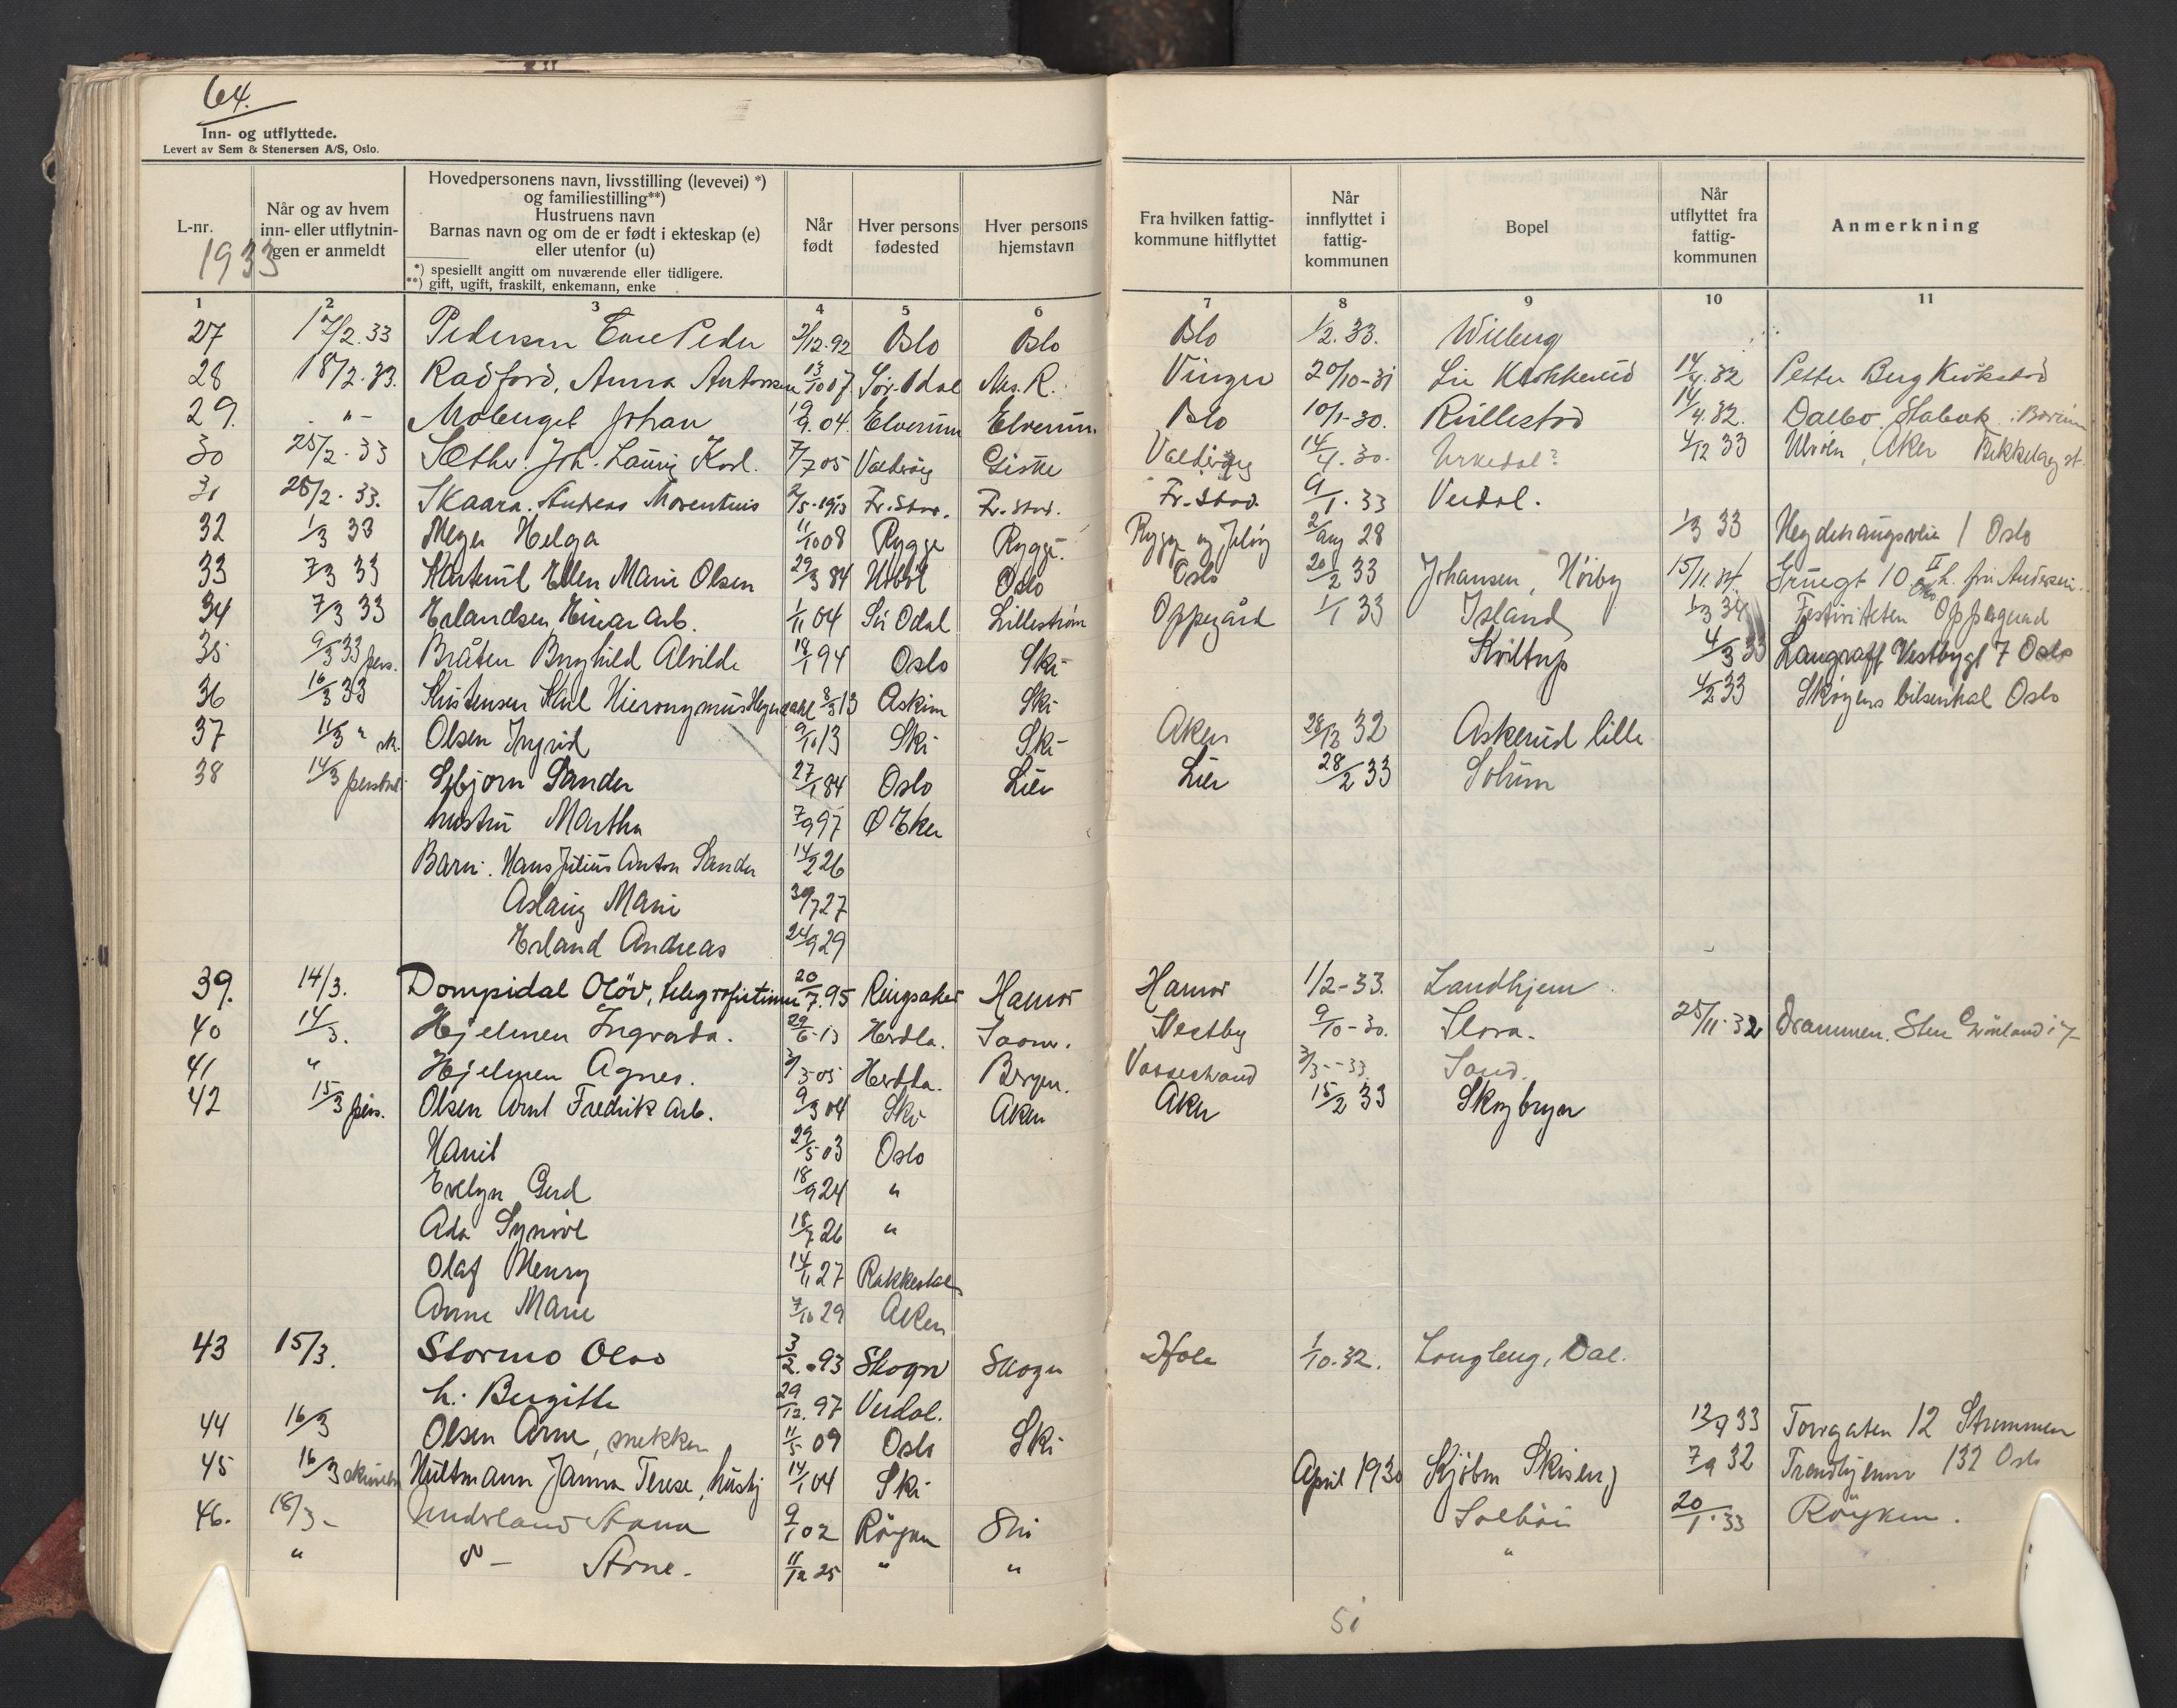 64.
Inn- og utflyttede.
Levert av Sem & Stenersen A/S, Oslo.
L-nr. 1933
Når og av hvem inn- eller utflytningen er anmeldt
Hovedpersonens navn, livsstilling (levevei) *) og familiestilling**) Hustruens navn Barnas navn og om de er født i ekteskap (e) eller utenfor (u)
*) spesiellt angitt om nuværende eller tidligere.
**) gift, ugift, fraskilt, enkemann, enke
Når født
Hver persons fødested
Hver persons hjemstavn
Fra hvilken fattigkommune hitflyttet
Når innflyttet i fattigkommunen
Bopel
Når utflyttet fra fattigkommunen
Anmerkning
1 2 3 4 5 6 7 8 9 10 11
27 17/2.33 Pedersen Peder 2/12.92 Oslo Oslo Oslo 1/2.33. Wilberg
28 18/2.33. Radford, Anna Antonsen 13/10 07 Sør-Odal Nes. R. Vinger 20/10-31 Li Krokkerud 14/4.32 Petter Berg Kirkstad
29. -"- Moberget Johan 19/9.04. Elverum Elverum Oslo 10/1-30. Rullestad 14/4.32. Dalbo. Stabæk. Bærum
30 25/2.33 Sæther. Joh. Lauriz Karl. 7/7 05 Valderøy Giske Valderøy 14/4.30. Urkedal? 4/12 33 Ulvøen, Aker Bekkelag st.
31 25/2.33. Skaara. Andreas Morentius 2/5-1913 Fr.Stad. Fr.Stad. Fr.Stad. 9/1.33 Verdal.
32 1/3 33 Meyer Helga 11/10 08 Rygge Rygge. Rygge og Jeløy 2/aug 28 1/3 33 Hegdehaugsveien 1 Oslo
33 7/3 33 Ellen Marie Olsen 29/3 84 Oslo Oslo 20/2 33 Johansen, Høiby 15/11.34. 10 II h. frú Andersen. Oslo
34 7/3 33 Erlandsen, Einar arb. 1/11 04 Sø Odal Lillestrøm Oppegård 1/1 33 Island 1/3 34 Festiviteten Oppegaard
35 9/3 33 pers. Bråten Borghild Alvilde 18/1 94 Oslo Ski Kviltrup 4/3 33 Langraff Vestbygt 7 Oslo
36 16/3 33 Kristensen Karl Hieronymus Heyerdahl 8/3 13 Askim Ski 4/2 33 Skøyens bilsentral Oslo
37 11/3 " sk. Olsen Ingrid 9/10 13 Ski Ski Aker 28/12 32 Askerud lille
38 14/3 personl. Esbjørn Sander 27/1 84 Oslo Lier Lier 28/2 33 Solum
hustru Martha 7/9 97 Ø Eker
Barn: Hans Julius Anton Sander 14/2 26
Aslaug Marie 30/7 27
Erland Andreas 24/9 29
39. 14/3. Dompidal Olöv, telegrafistinne 20/7.95 Ringsaker Hamar Hamar 1/2-33. Landhjem
40 14/3. Hjelmen Ingvarda. 29/6-13 Herdla. Vestby 9/10-30. Flora. 25/11.32 Drammen. Grönland 17
41 " Hjelmen Agnes. 3/3-05 Herdla. Bergen. Vossestrand 3/3--33. Sand.
42 15/3 pers. Olsen Arnt Fredrik arb. 9/3 04 Ski Aker Aker 15/2 33 Skogbryn
29/5 03 Oslo
Evelyn Gerd 18/9 24 "
Ada Synnöve 18/7 26 "
Olaf Henry 14/11 27 Rakkestad
Anne Marie 7/10 29 Aker
43 15/3. Stormo Olav 3/2.93 Skogn Skogn Hole 1/10.32. Langberg, Dal.
h. Bergitte 29/12.97 Verdal.
44 16/3 Olsen Arne, snekker 11/5 09 Oslo Ski 12/9 33 Torvgaten 12 Strømmen
45 16/3 Hultmann Janna Terese, hushj 14/1 04 Ski April 1930 7/9 32 132 Oslo
46. 18/3- 9/1 02 Røyken Ski Solhöi 20/1.33 Röyken.
" d°- Arne. 11/12 25 " " "